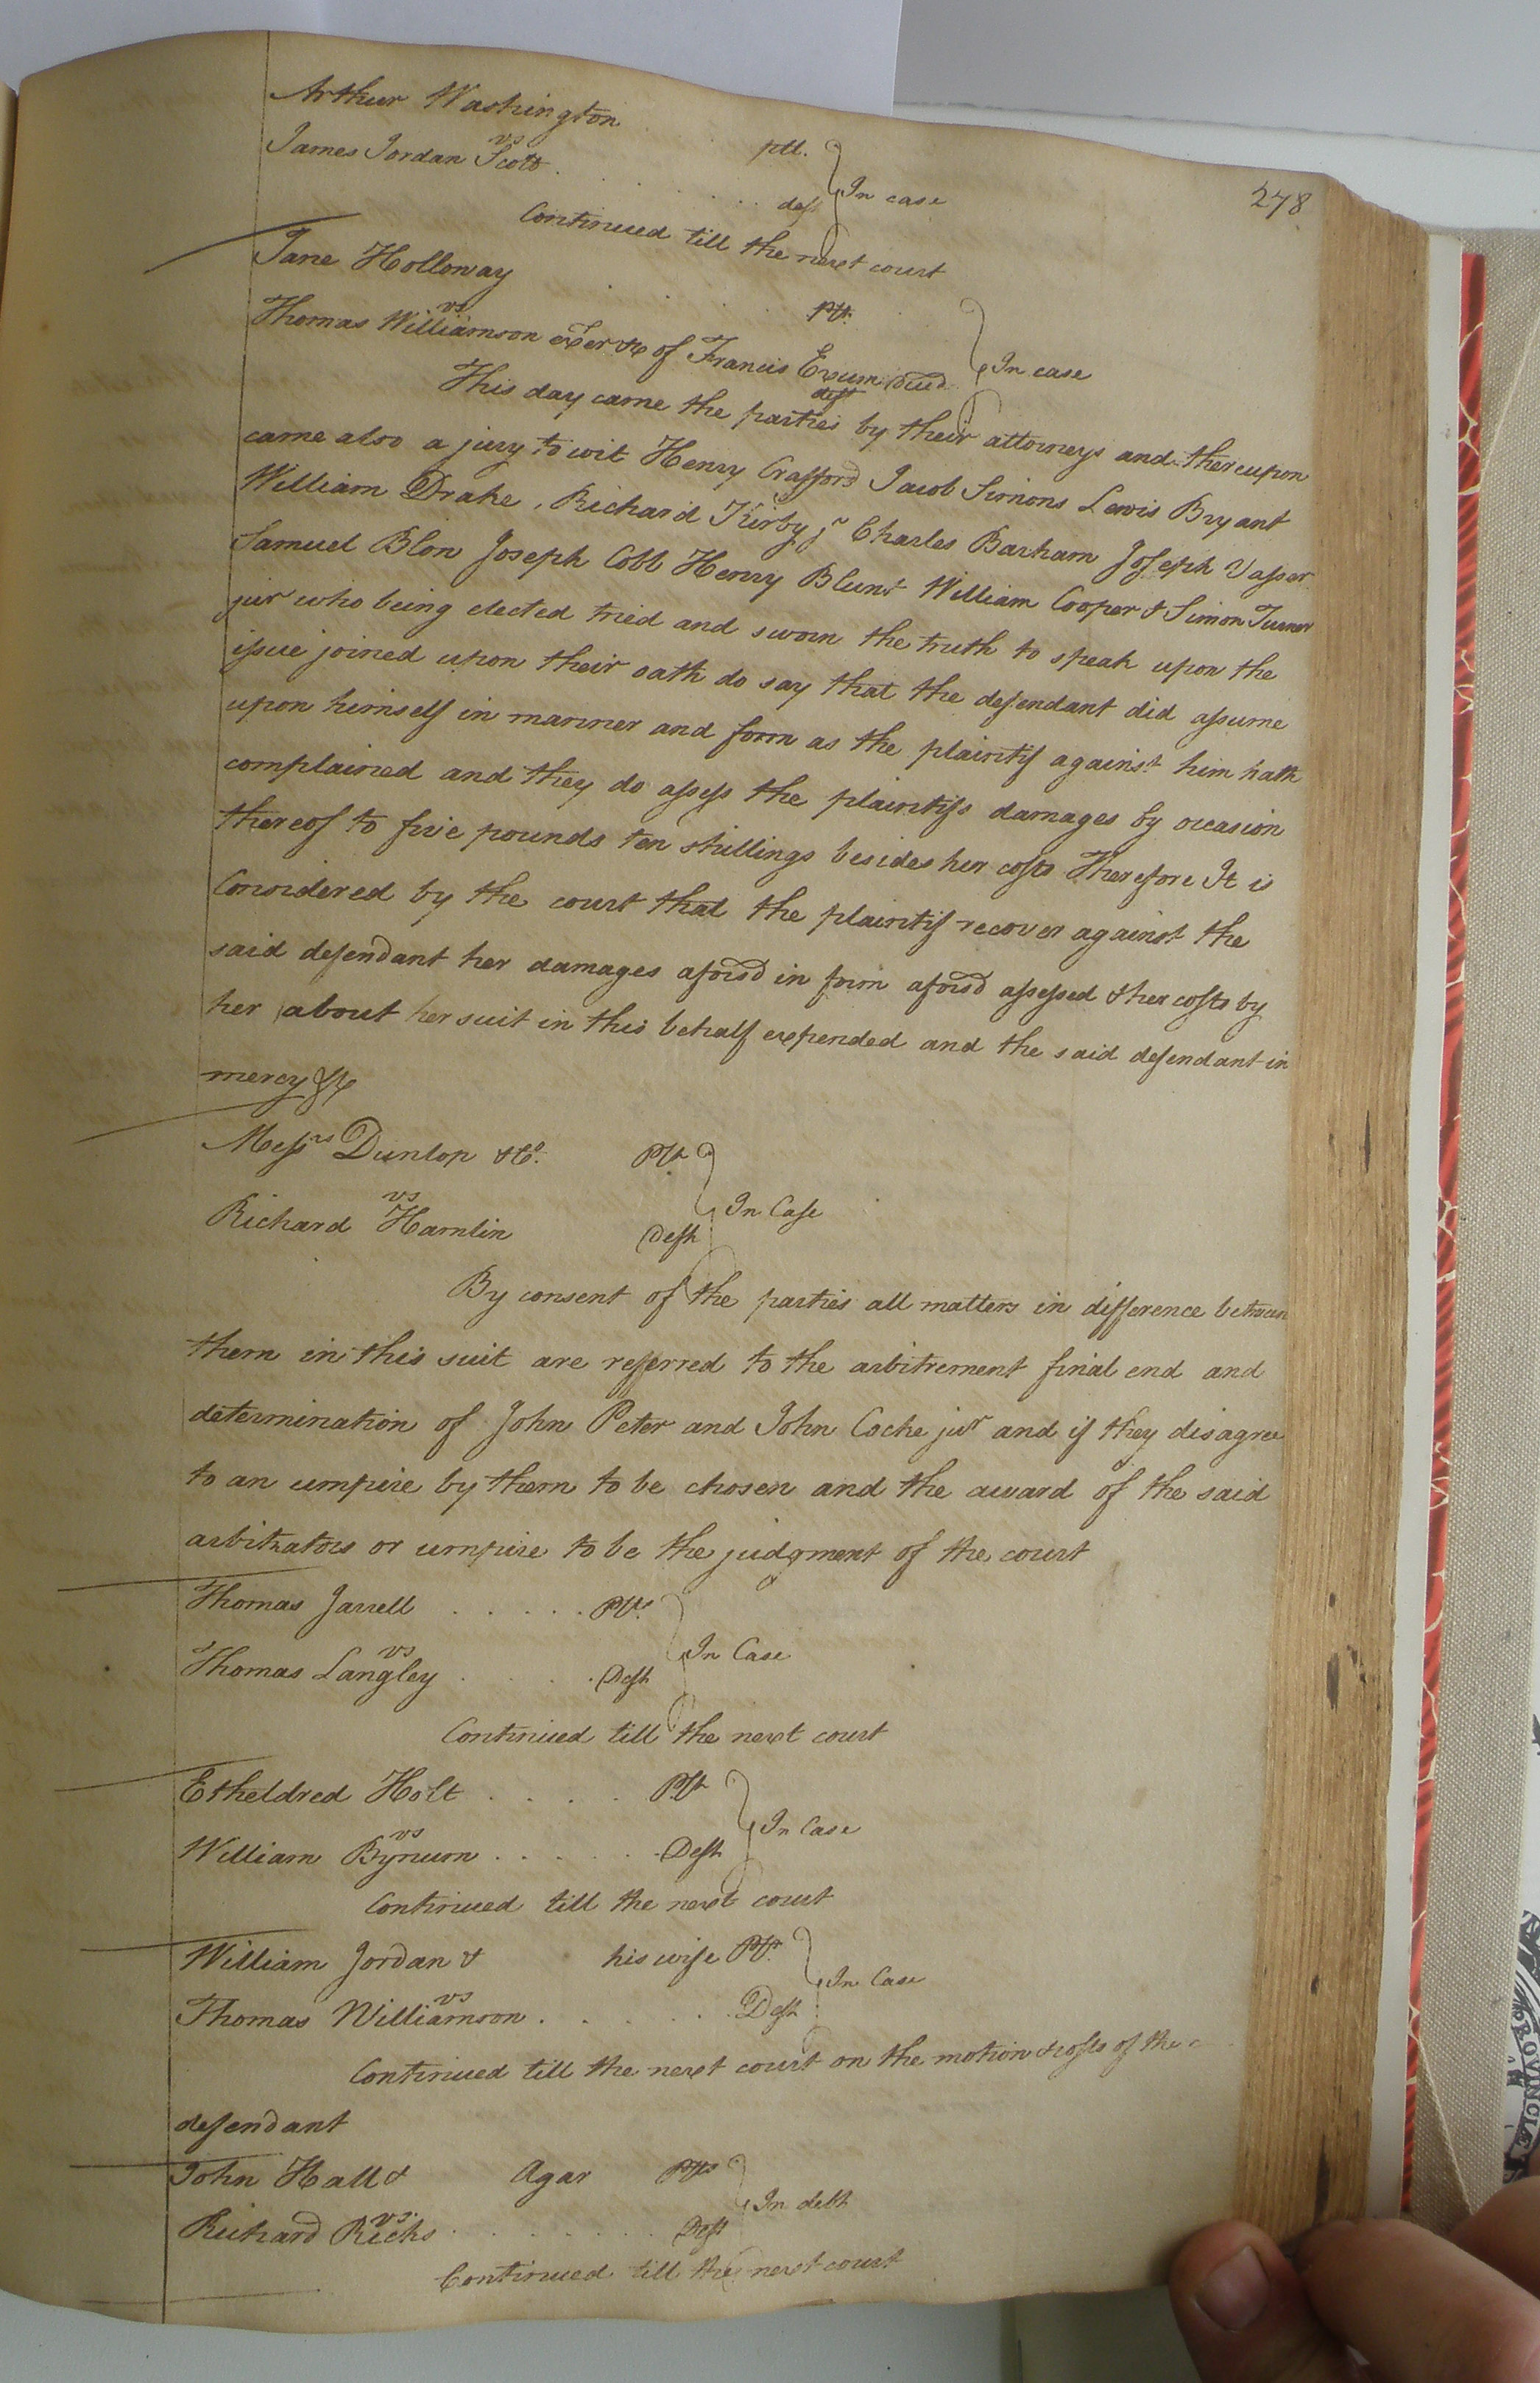 278
Arthur Washington ptl.
vs
James Jordan Scott . . . . . . . def In case
Continued till the next court
Jane Holloway . . . . . Plt.
vs
Thomas Williamson exer &c of Francis Exum decd In case
deft
This day came the parties by their attorneys and thereupon
came also a jury to wit Henry Crafford Jacob Simons Lewis Bryant
William Drake, Richard Kirby jr Charles Barham Joseph Vasser
Samuel Blow Joseph Cobb Henry Blunt William Cooper & Simon Turner
jur who being elected tried and sworn the truth to speak upon the
issue joined upon their oath do say that the defendant did assume
upon himself in manner and form as the plaintif against him hath
complained and they do assess the plaintifs damages by occasion
thereof to five pounds ten shillings besides her costs Therefore It is
Considered by the court that the plaintif recover against the
said defendant her damages aforsd in form aforsd assessed & her costs by
her about her suit in this behalf expended and the said defendant in
mercy &c
Messrs Dunlop & Co. Plt
vs In Case
Richard Hamlin Deft
By consent of the parties all matters in difference between
them in this suit are referred to the arbitrement final end and
determination of John Peter and John Cocke jur and if they disagree
to an umpire by them to be chosen and the award of the said
arbitrators or umpire to be the judgment of the court
Thomas Jarrell . . . . . Plt.
vs In Case
Thomas Langley . . . . Deft
Continued till the next court
Etheldred Holt . . . . Plt
vs In Case
William Bynum . . . . . . Deft
Continued till the next court
William Jordan & his wife Plt.
vs In Case
Thomas Williamson . . . . . . Deft
Continued till the next court on the motion & costs of the
defendant
John Hall & Agar Plts
vs. In debt
Richard Ricks . . . . . . . . Deft
Continued till the next court